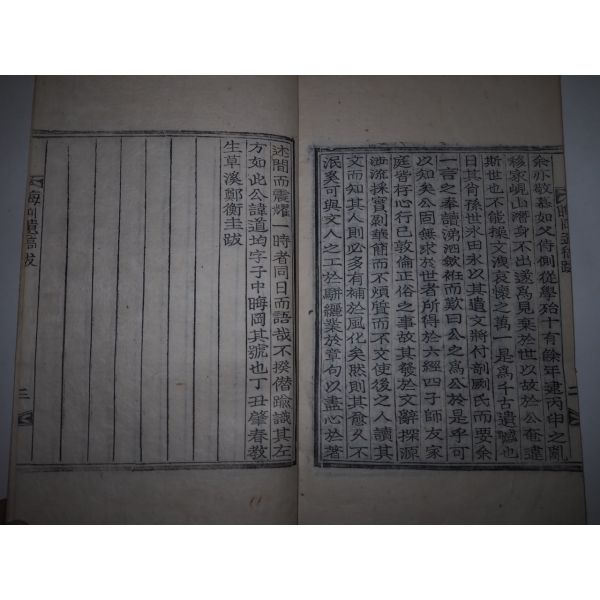 余亦敬慕如父侍側從學殆十有餘年逮丙申之亂
移家峴山潛身不出遂爲見棄於世以故於公奄違
斯世也不能操文洩哀懷之萬一是爲千古遺憾也
日其肖孫世永田永以其遺文將付剞劂氏而要余
一言之奉讀涕泗斂袵而歎曰公之爲公於是乎可
以知矣公固無求於世者所得於六經四子師友家
庭皆存心行己敦倫正俗之事故其發於文辭探源
泝流採實剔華簡而不煩質而不文使後之人讀其
文而知其人則必多有補於風化矣然則其愈久不
泯奚可與文人之工於騈纚業於章句以盡心於著
述間而震耀一時者同日而語哉不揆僭踰識其左
方如此公諱道均字子中晦岡其號也丁丑肇春敎
生草溪鄭衡圭跋
遺稿跋
二
三